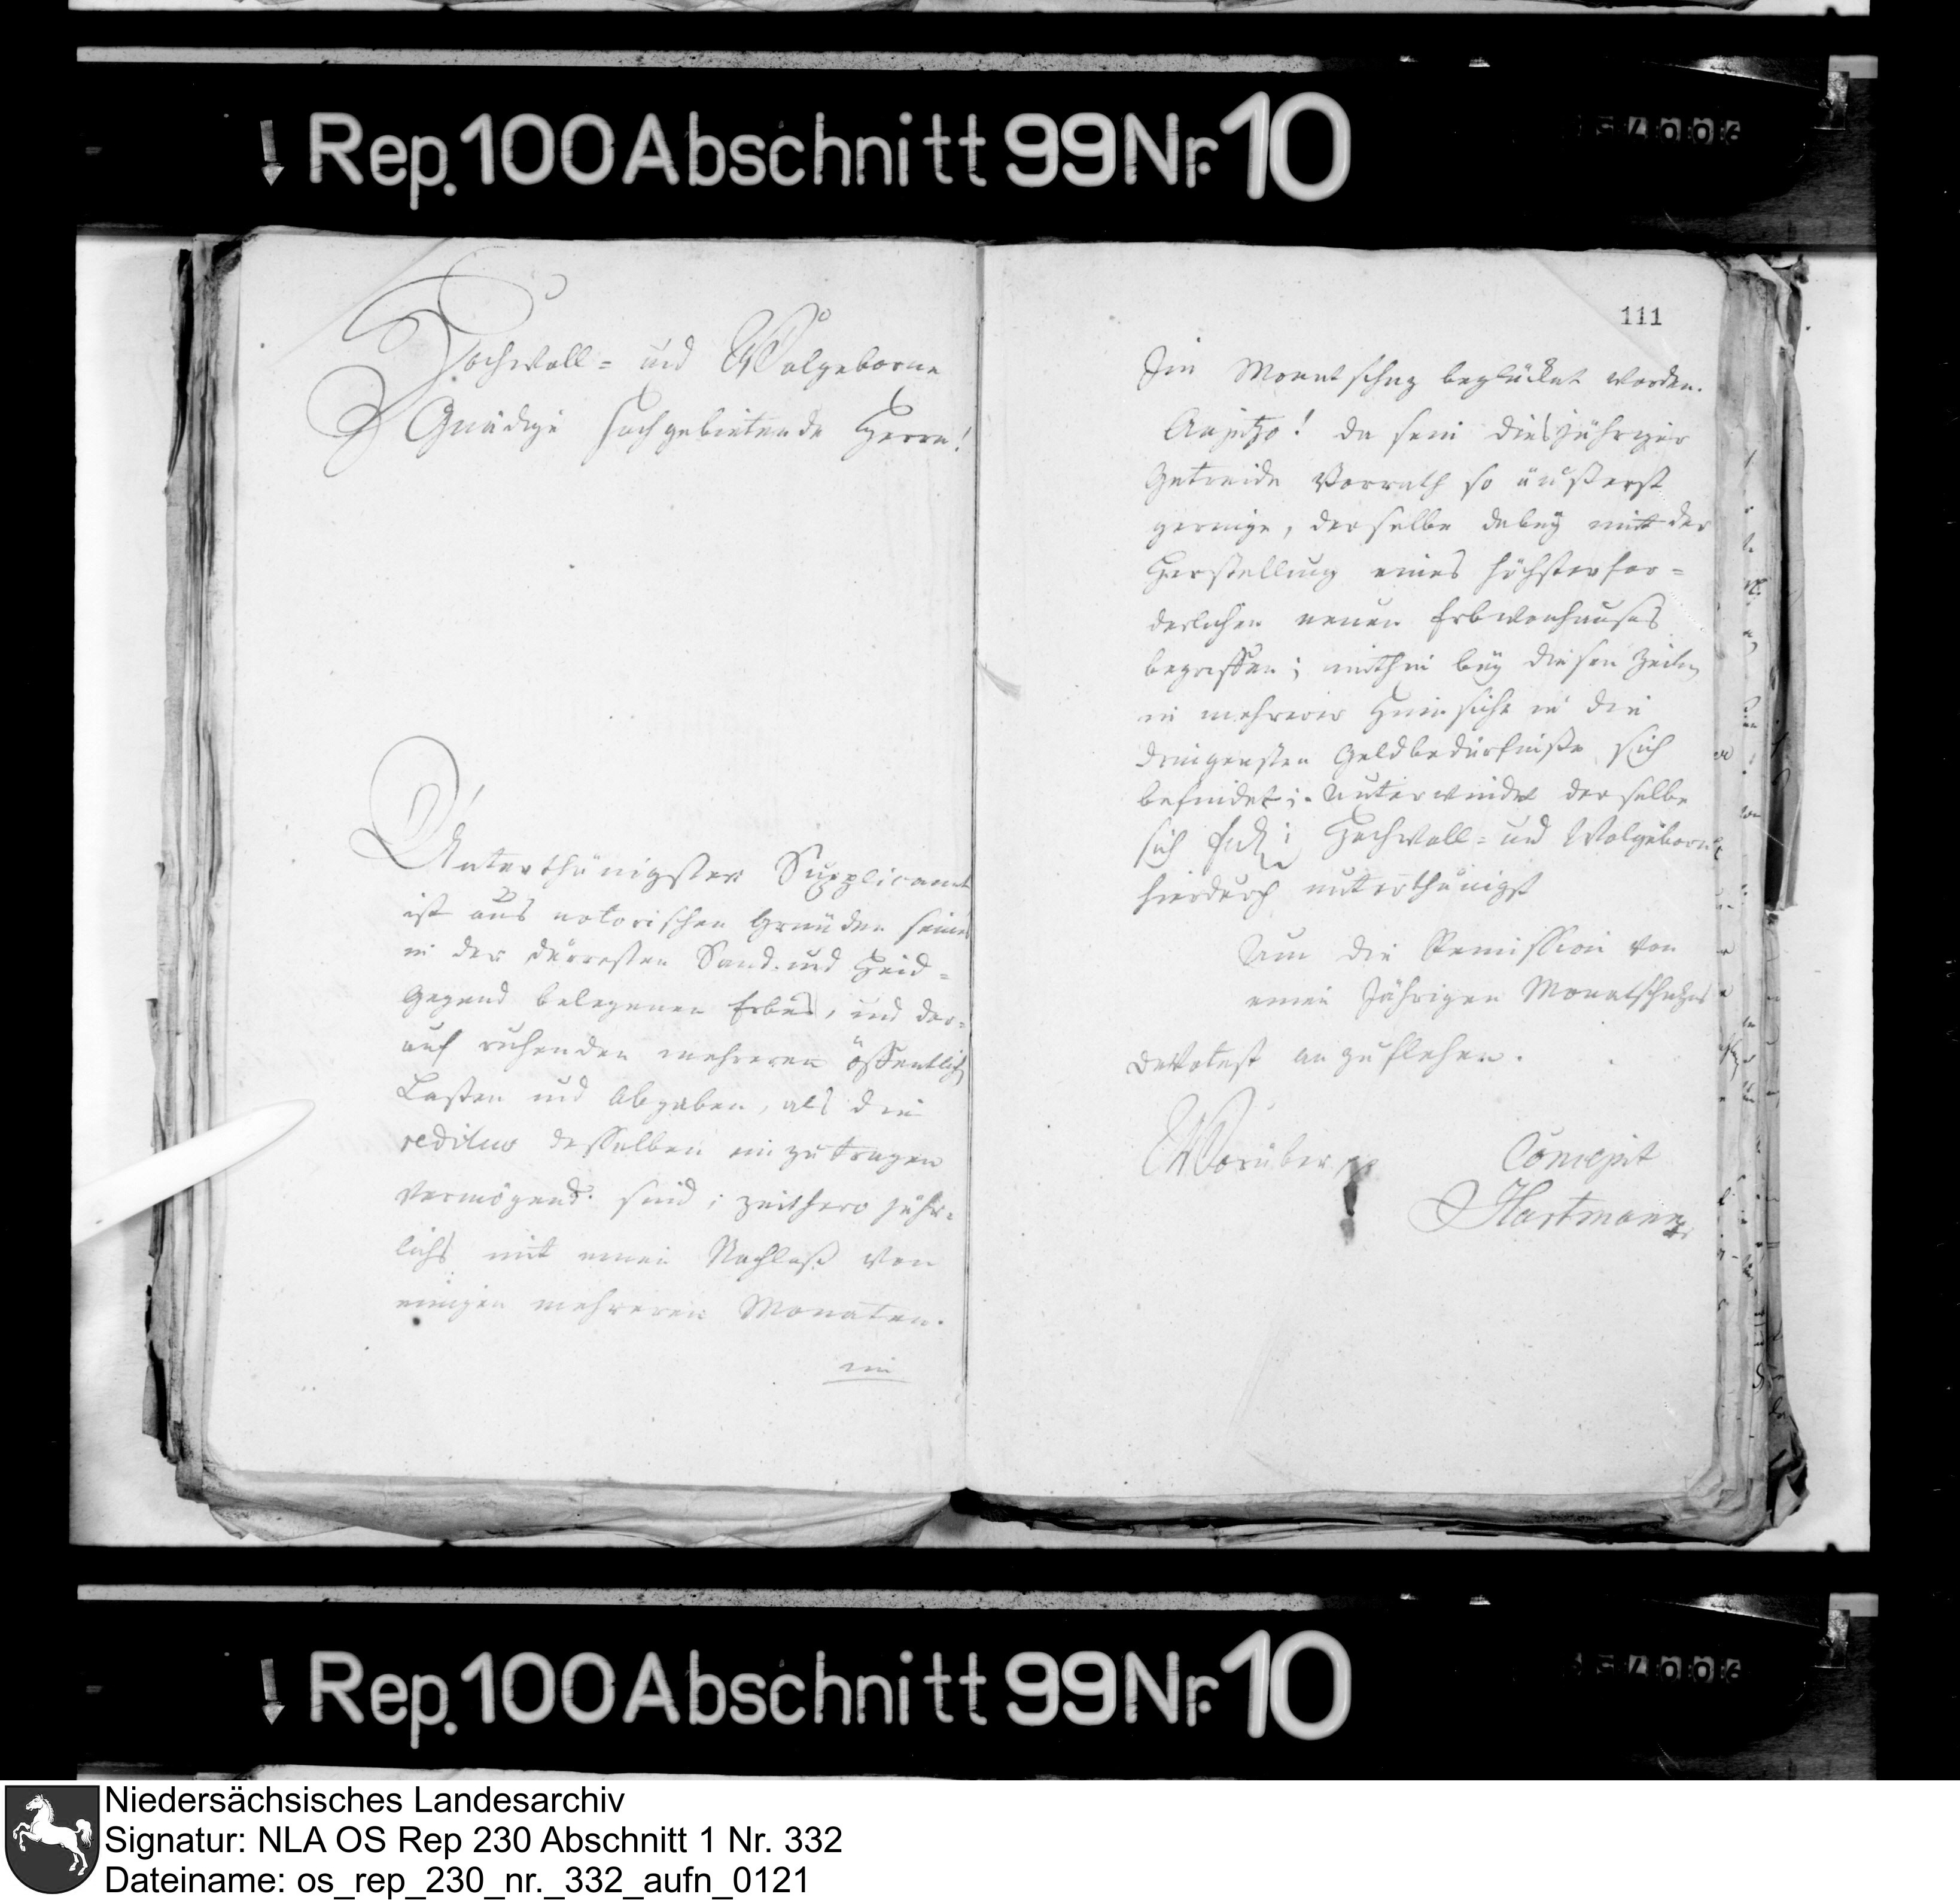 Rep. 100 Abschnitt 99 Nr. 10
Hochwoll= und Wolgeborne
Gnädige hochgebietende Herrn!
Unterthänigster Supplicant
ist aus notorischen Gründen seines
in der dürresten Sand- und Heid=
Gegend belegenen Erbes, und dar=
auf ruhenden mehreren öffentlich
Lasten und Abgaben, als die
reditus desselben einzutragen
vermögend sind; zeithero jähr=
lichs mit einen Nachlaß von
einigen mehreren Monaten.
im
111
Im Monatschaz beglücket worden.
Anjetzo! da sein diesjähriger
Getreide Vorrath so äußerst
geringe, derselbe dabey mit der
Herstellung eines höchsterfor=
derlichen neuen Erbwonhauses
begriffen; mithin bey diesen Zeiten
in mehrerer Hinsicht in die
dringensten Geldbedürfniße sich
befindet; unterwindet derselbe
sich Hochwoll= und Wolgeborne
hierdurch unterthänigst
Um die Remission von
einen Jährigen Monatschatzes
devotest anzuflehen.
Worüber pp
Concepit
Hartmann
Rep. 100 Abschnitt 99 Nr. 10
Niedersächsisches Landesarchiv
Signatur: NLA OS Rep 230 Abschnitt 1 Nr. 332
Dateiname: os_rep_230_nr._332_aufn_0121